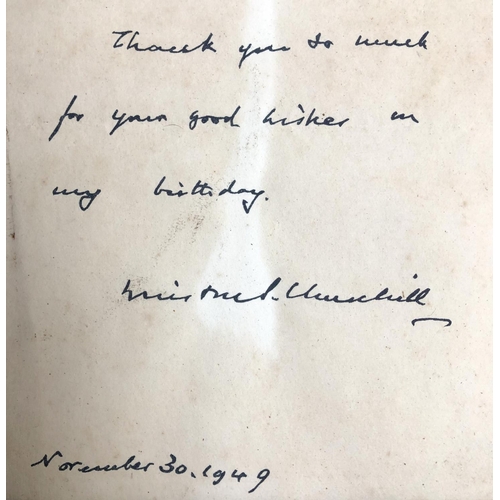 Thank you so much
for your good wishes on
my birthday.
Winston S. Churchill
November 30. 1949